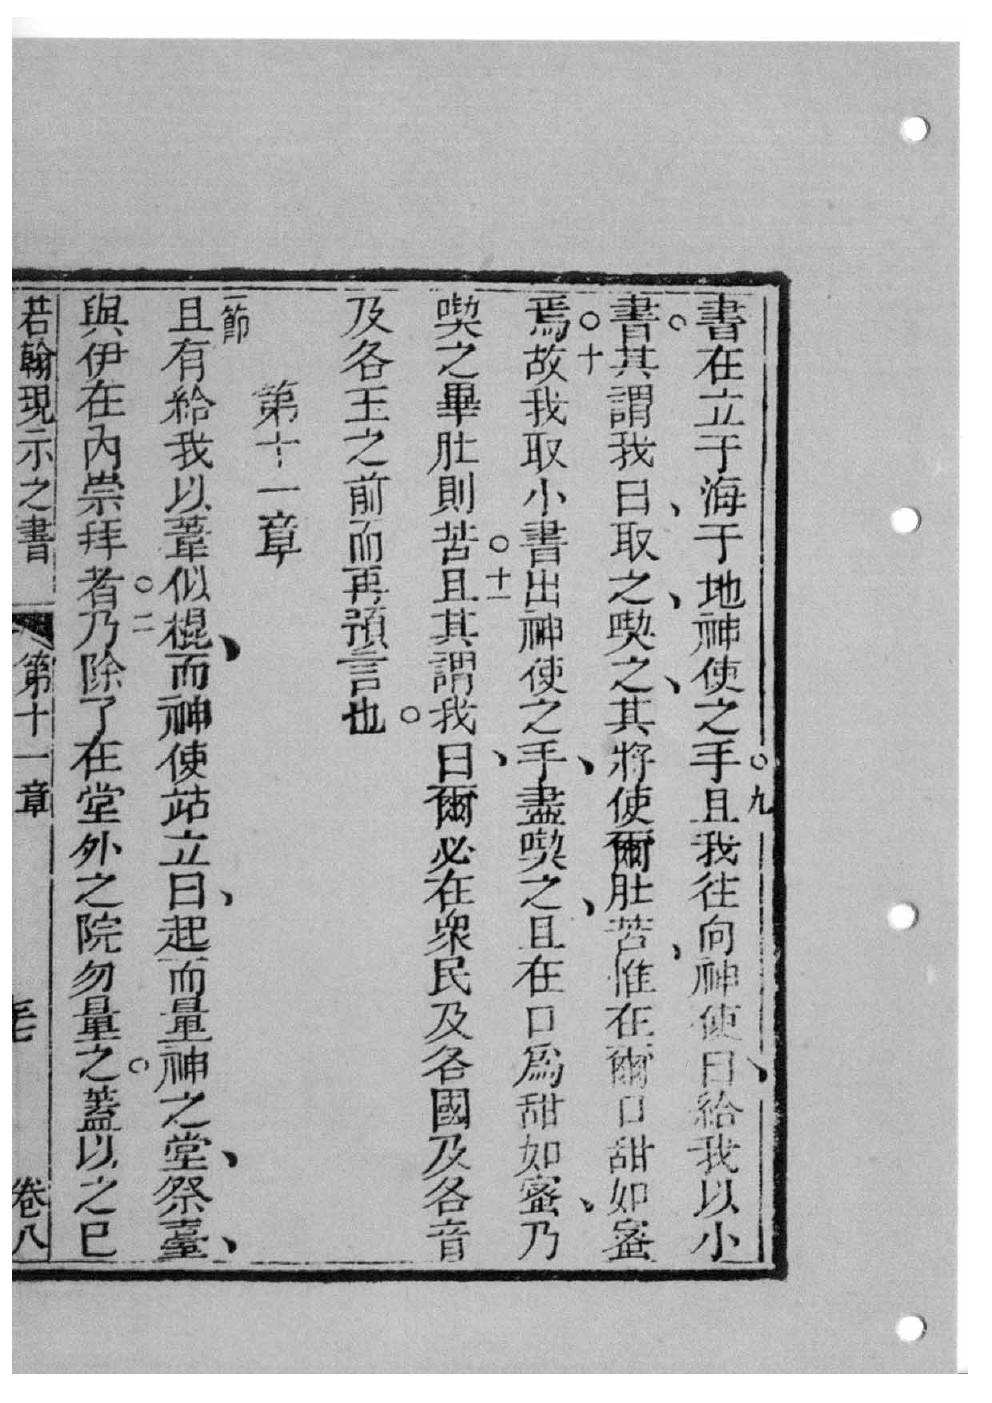 書在立于海于地神使之手○九且我往向神使曰、給我以小
書○其謂我曰、取之、喫之、其將使爾肚苦、惟在爾口甜如蜜
焉○十故我取小書出神使之手、盡喫之、且在口爲甜如蜜、乃
喫之畢肚則苦○十一且其謂我曰、爾必在衆民及各國及各音
及各王之前而再預言也○
第十一章
一節且有給我以葦似棍、而神使站立曰、起而量神之堂、祭臺、
與伊在內崇拜者○二乃除了在堂外之院勿量之○蓋以之已
若翰現示之書 第十一章 卷八